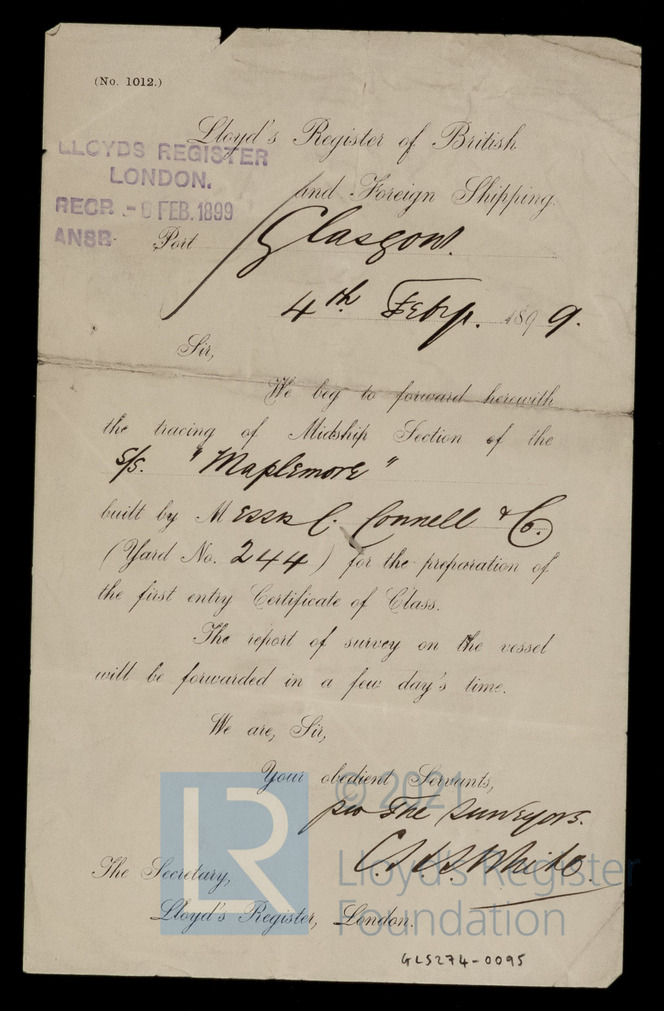 (No. 1012.)
Lloyd's Register of British
and Foreign Shipping.
LLOYDS REGISTER
LONDON.
RECP. -6 FEB. 1899
ANSR.
Port Glasgow.
4th Febry. 1899.
Sir,
We beg to forward herewith
the tracing of Midship Section of the
S/S. "Maplemore"
built by Messrs C. Connell & Co.
(Yard No. 244) for the preparation of
the first entry Certificate of Class.
The report of survey on the vessel
will be forwarded in a few day's time.
We are, Sir,
Your obedient Servants,
© 2021
per The Surveyors.
White.
The Secretary,
Lloyd's Register, London.
LR
Lloyd's Register
Foundation
GLS274-0095